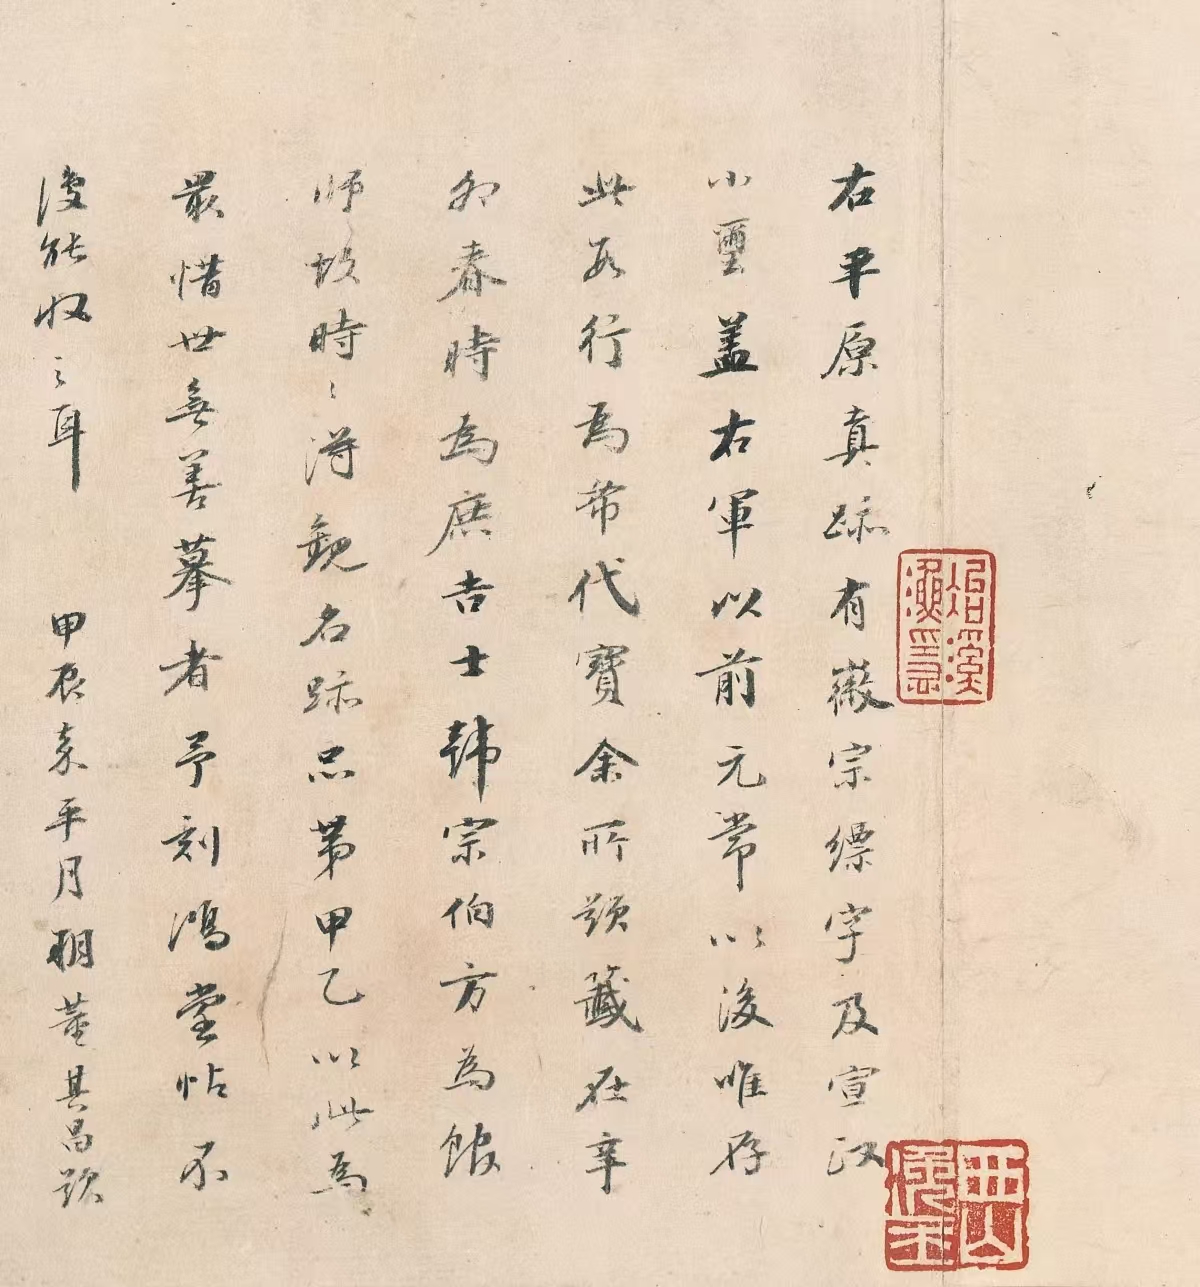 右平原真跡有徽宗縹字及宣政
小璽蓋右軍以前元常以後唯存
此數行為希代寶余所題籤在辛
卯春時為庶吉士韓宗伯方為館
師故時〻得觀名跡品第甲乙以此為
最惜世無善摹者予刻鴻堂帖不
復能收之耳 甲辰嘉平月朔董其昌題
冶溪漁隱
西山逸士